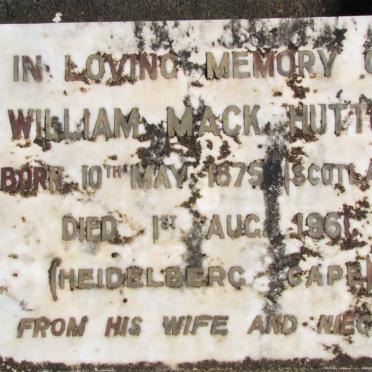 IN LOVING MEMORY O
WILLIAM MACK HUTT
BORN 10TH MAY 1875 (SCOTLA
DIED 1ST AUG. 1961.
(HEIDELBERG CAPE)
FROM HIS WIFE AND NIEC